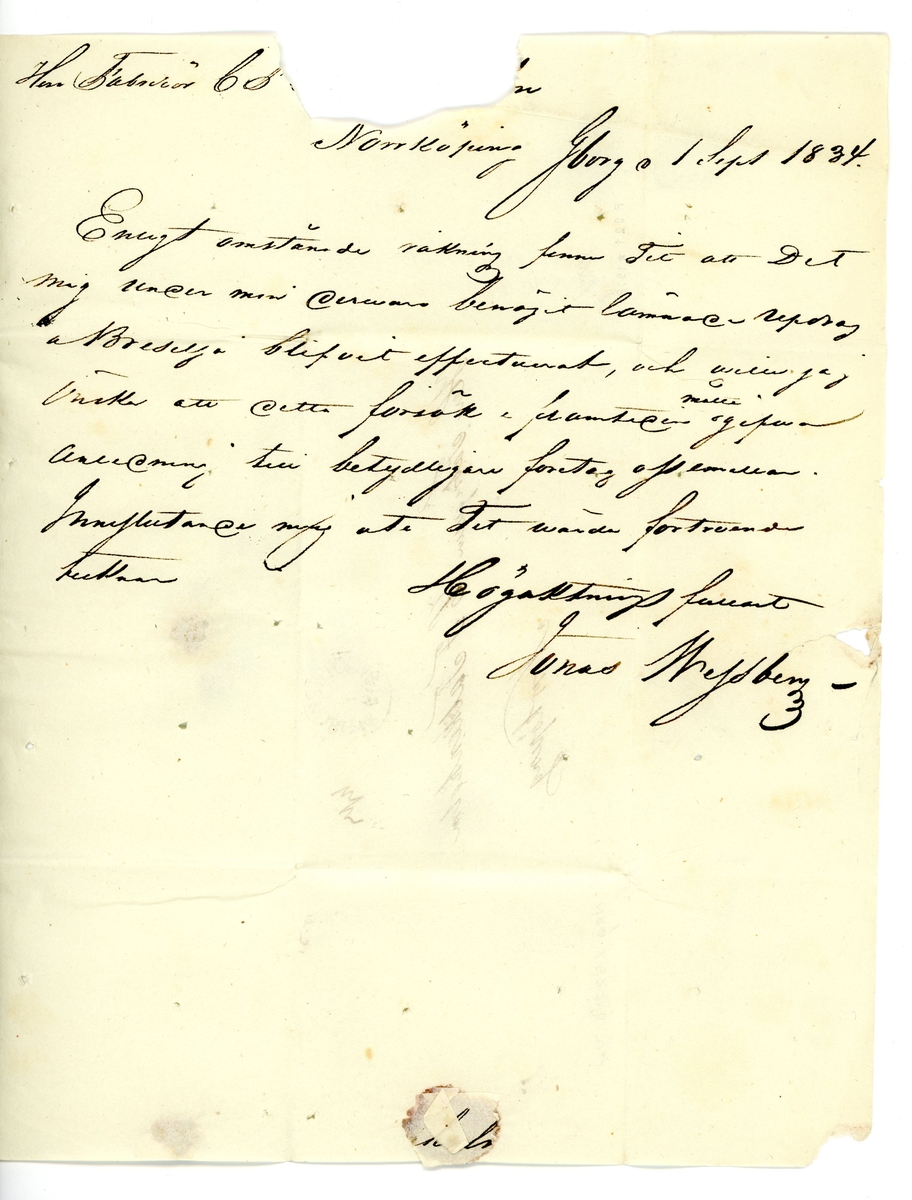 Herr Fabriör C S
Norrköping Gborg d 1 Sept 1834.
Enligt omstånde räkning finner Tit att Det
mig under min dervaro benäget lämnade updrag
a Bresilja blifvit effectuerat, och ville jag
Önska att detta försök i framtiden måtte gifva
Anledning till betydligare företag oss emellan.
Inneslutande mig uti Tit wärda förtroende
tecknar Högaktningsfullast
Jonas Wessberg